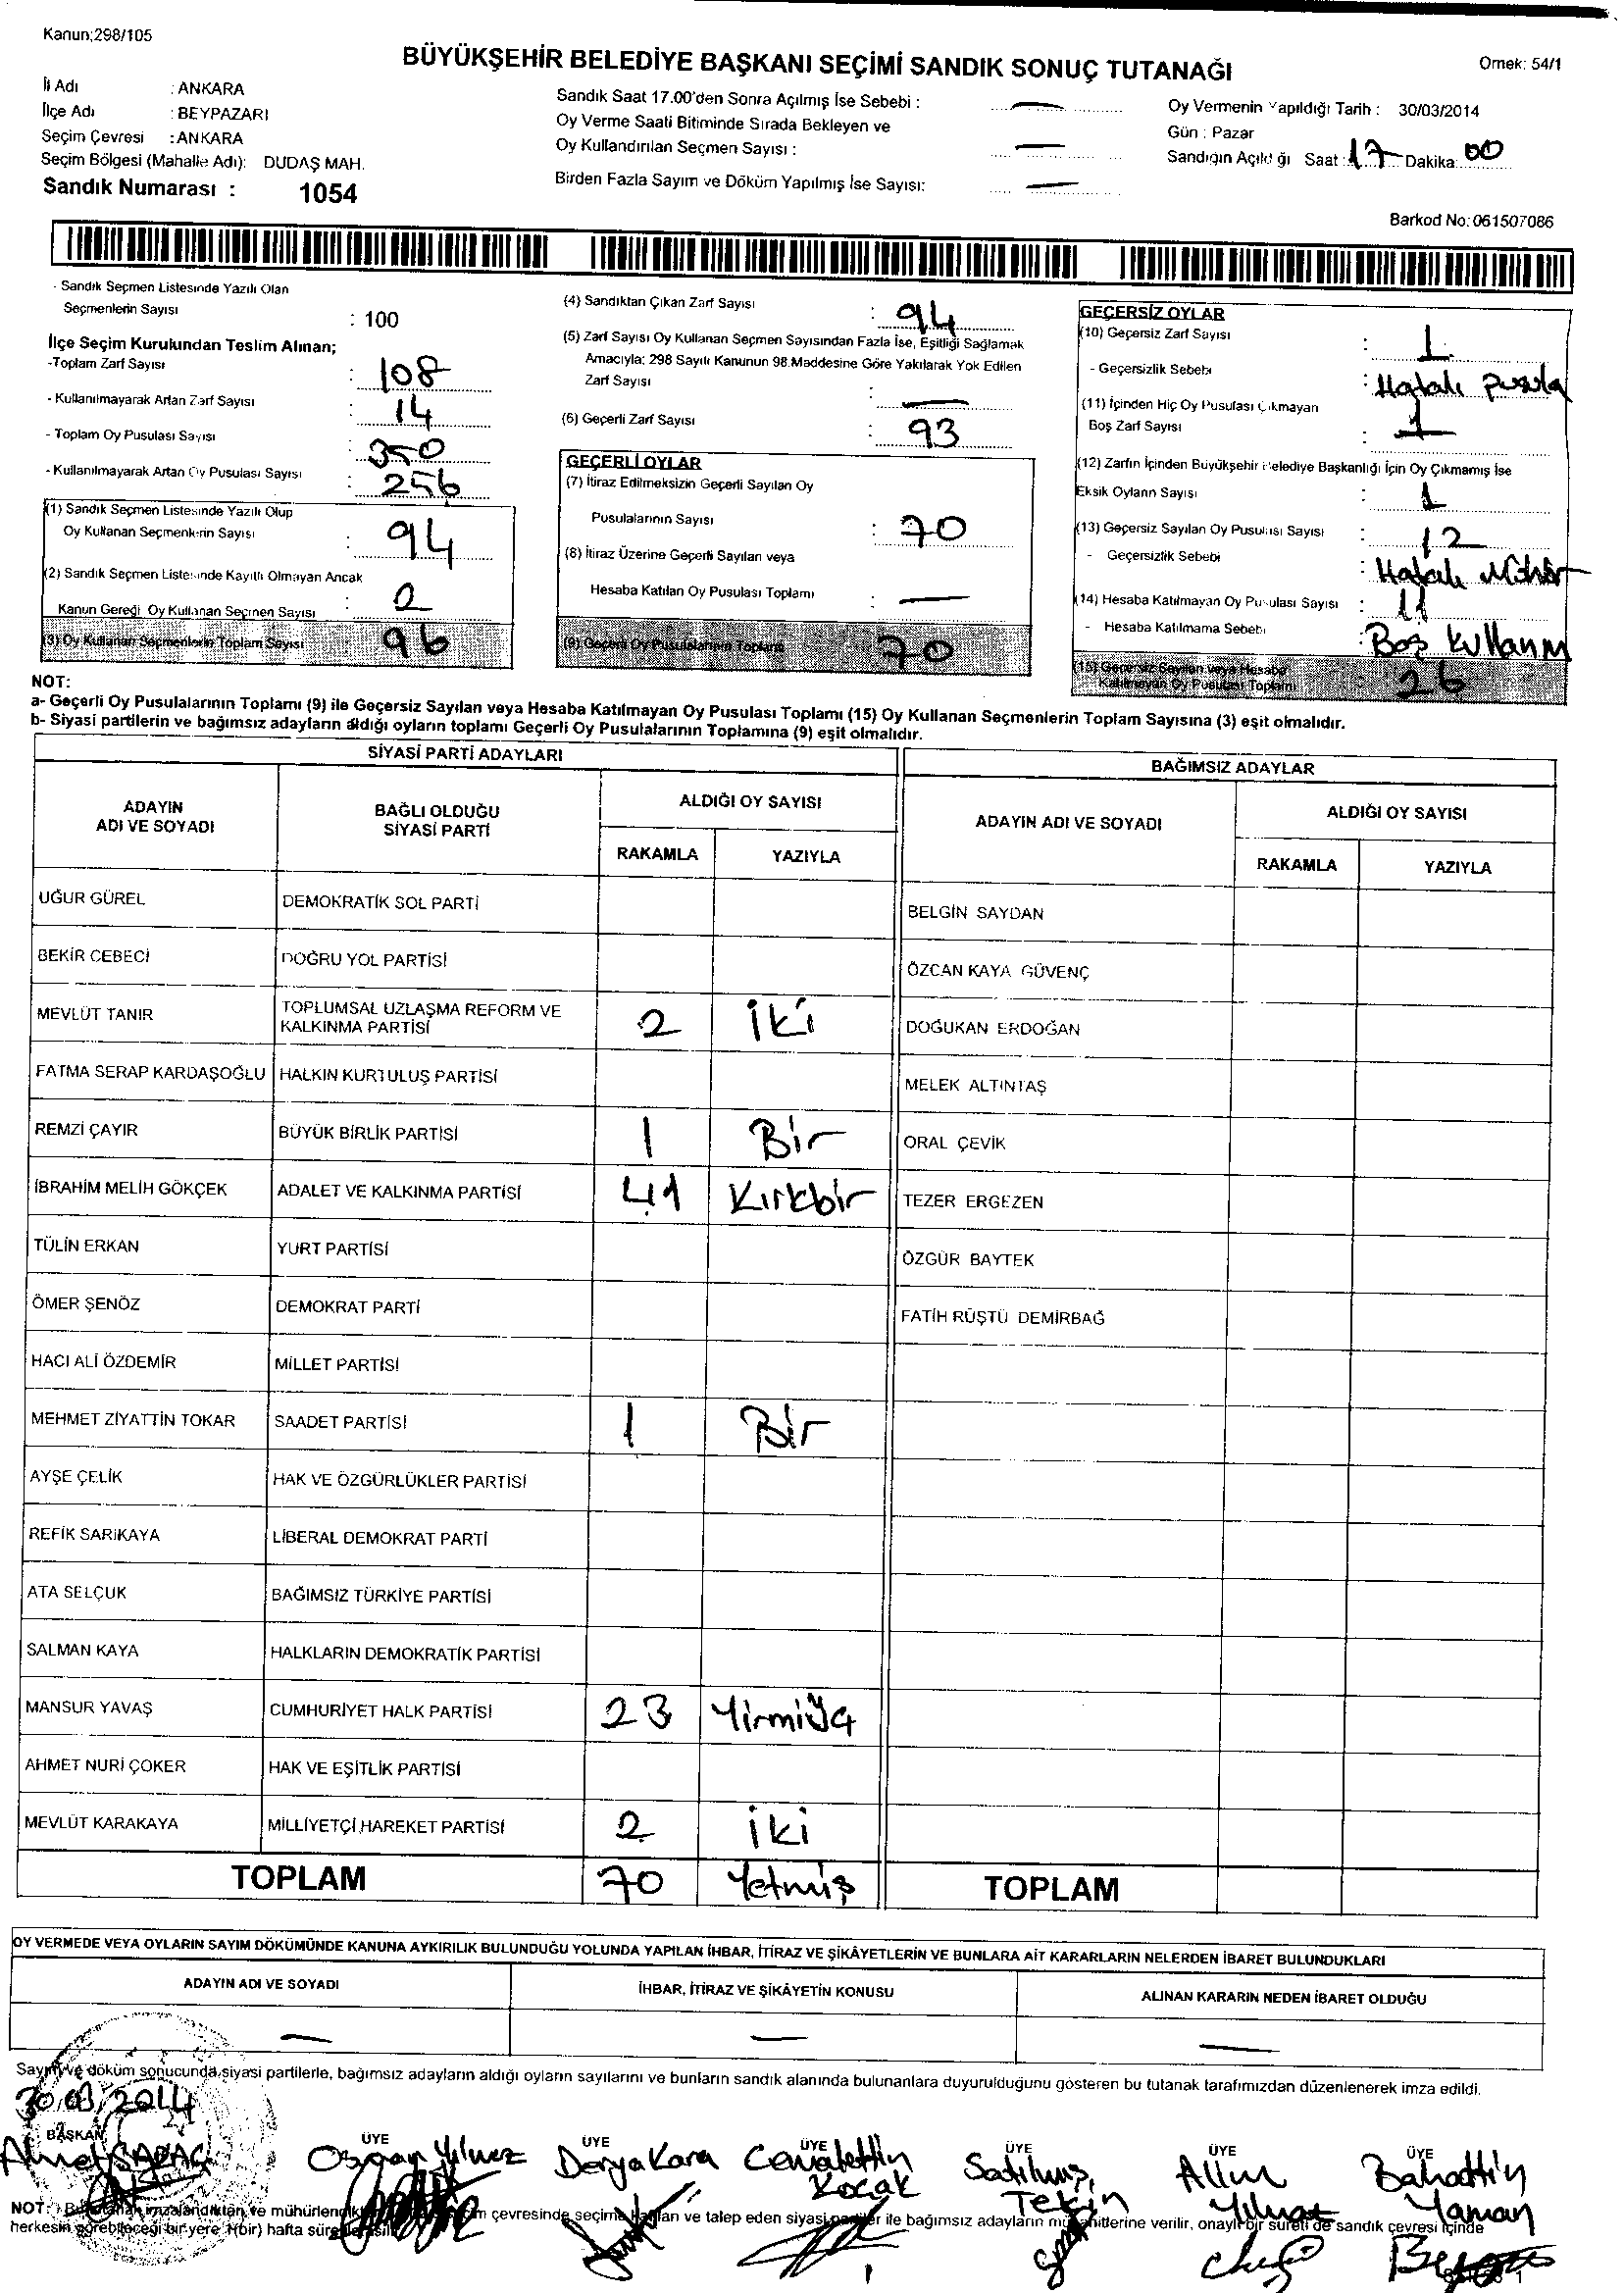 Kanun;298/105
BÜYÜKŞEHİR BELEDİYE BAŞKANI SEÇİMİ SANDIK SONUÇ TUTANAĞI
Örnek: 54/1
İl Adı : ANKARA
İlçe Adı : BEYPAZARI
Seçim Çevresi : ANKARA
Seçim Bölgesi (Mahalle Adı): DUDAŞ MAH.
Sandık Numarası : 1054
Sandık Saat 17.00'den Sonra Açılmış İse Sebebi : —
Oy Verme Saati Bitiminde Sırada Bekleyen ve
Oy Kullandırılan Seçmen Sayısı : —
Birden Fazla Sayım ve Döküm Yapılmış İse Sayısı: —
Oy Vermenin Yapıldığı Tarih : 30/03/2014
Gün : Pazar
Sandığın Açıldığı Saat : 17 Dakika: 00
Barkod No: 061507086
- Sandık Seçmen Listesinde Yazılı Olan
Seçmenlerin Sayısı : 100
İlçe Seçim Kurulundan Teslim Alınan;
-Toplam Zarf Sayısı : 108
- Kullanılmayarak Artan Zarf Sayısı : 14
- Toplam Oy Pusulası Sayısı : 350
- Kullanılmayarak Artan Oy Pusulası Sayısı : 256
(1) Sandık Seçmen Listesinde Yazılı Olup
Oy Kullanan Seçmenlerin Sayısı : 94
(2) Sandık Seçmen Listesinde Kayıtlı Olmayan Ancak
Kanun Gereği Oy Kullanan Seçmen Sayısı : 2
(3) Oy Kullanan Seçmenlerin Toplam Sayısı : 96
(4) Sandıktan Çıkan Zarf Sayısı : 94
(5) Zarf Sayısı Oy Kullanan Seçmen Sayısından Fazla İse, Eşitliği Sağlamak
Amacıyla; 298 Sayılı Kanunun 98.Maddesine Göre Yakılarak Yok Edilen
Zarf Sayısı : —
(6) Geçerli Zarf Sayısı : 93
GEÇERLİ OYLAR
(7) İtiraz Edilmeksizin Geçerli Sayılan Oy
Pusulalarının Sayısı : 70
(8) İtiraz Üzerine Geçerli Sayılan veya
Hesaba Katılan Oy Pusulası Toplamı : —
(9) Geçerli Oy Pusulalarının Toplamı : 70
GEÇERSİZ OYLAR
(10) Geçersiz Zarf Sayısı : 1
- Geçersizlik Sebebi : Hatalı pusula
(11) İçinden Hiç Oy Pusulası Çıkmayan
Boş Zarf Sayısı : 1
(12) Zarfın İçinden Büyükşehir Belediye Başkanlığı İçin Oy Çıkmamış İse
Eksik Oyların Sayısı : 1
(13) Geçersiz Sayılan Oy Pusulası Sayısı : 12
- Geçersizlik Sebebi : Hatalı Mühür
(14) Hesaba Katılmayan Oy Pusulası Sayısı : 11
- Hesaba Katılmama Sebebi : Boş kullanım
(15) Geçersiz Sayılan veya Hesaba
Katılmayan Oy Pusulası Toplamı : 26
NOT:
a- Geçerli Oy Pusulalarının Toplamı (9) ile Geçersiz Sayılan veya Hesaba Katılmayan Oy Pusulası Toplamı (15) Oy Kullanan Seçmenlerin Toplam Sayısına (3) eşit olmalıdır.
b- Siyasi partilerin ve bağımsız adayların aldığı oyların toplamı Geçerli Oy Pusulalarının Toplamına (9) eşit olmalıdır.
SİYASİ PARTİ ADAYLARI BAĞIMSIZ ADAYLAR
ADAYIN ADI VE SOYADI BAĞLI OLDUĞU SİYASİ PARTİ ALDIĞI OY SAYISI ADAYIN ADI VE SOYADI ALDIĞI OY SAYISI
RAKAMLA YAZIYLA RAKAMLA YAZIYLA
UĞUR GÜREL DEMOKRATİK SOL PARTİ BELGİN SAYDAN
BEKİR CEBECİ DOĞRU YOL PARTİSİ ÖZCAN KAYA GÜVENÇ
MEVLÜT TANIR TOPLUMSAL UZLAŞMA REFORM VE KALKINMA PARTİSİ 2 İki DOĞUKAN ERDOĞAN
FATMA SERAP KARDAŞOĞLU HALKIN KURTULUŞ PARTİSİ MELEK ALTINTAŞ
REMZİ ÇAYIR BÜYÜK BİRLİK PARTİSİ 1 Bir ORAL ÇEVİK
İBRAHİM MELİH GÖKÇEK ADALET VE KALKINMA PARTİSİ 41 Kırkbir TEZER ERGEZEN
TÜLİN ERKAN YURT PARTİSİ ÖZGÜR BAYTEK
ÖMER ŞENÖZ DEMOKRAT PARTİ FATİH RÜŞTÜ DEMİRBAĞ
HACI ALİ ÖZDEMİR MİLLET PARTİSİ
MEHMET ZİYATTİN TOKAR SAADET PARTİSİ 1 Bir
AYŞE ÇELİK HAK VE ÖZGÜRLÜKLER PARTİSİ
REFİK SARIKAYA LİBERAL DEMOKRAT PARTİ
ATA SELÇUK BAĞIMSIZ TÜRKİYE PARTİSİ
SALMAN KAYA HALKLARIN DEMOKRATİK PARTİSİ
MANSUR YAVAŞ CUMHURİYET HALK PARTİSİ 23
AHMET NURİ ÇOKER HAK VE EŞİTLİK PARTİSİ
MEVLÜT KARAKAYA MİLLİYETÇİ HAREKET PARTİSİ 2 İki
TOPLAM 70 Yetmiş TOPLAM
OY VERMEDE VEYA OYLARIN SAYIM DÖKÜMÜNDE KANUNA AYKIRILIK BULUNDUĞU YOLUNDA YAPILAN İHBAR, İTİRAZ VE ŞİKÂYETLERİN VE BUNLARA AİT KARARLARIN NELERDEN İBARET BULUNDUKLARI
ADAYIN ADI VE SOYADI İHBAR, İTİRAZ VE ŞİKÂYETİN KONUSU ALINAN KARARIN NEDEN İBARET OLDUĞU
— — —
Sayım ve döküm sonucunda siyasi partilerle, bağımsız adayların aldığı oyların sayılarını ve bunların sandık alanında bulunanlara duyurulduğunu gösteren bu tutanak tarafımızdan düzenlenerek imza edildi.
30/03/2014
BAŞKAN ÜYE ÜYE ÜYE ÜYE ÜYE ÜYE
Ahmet SARAÇ Osman Yılmaz Derya Kara Cemalettin Koçak Satılmış Tekin Yılmaz Bahattin Yaman
NOT: Bu tutanak imzalandıktan ve mühürlendikten çevresinde seçime katılan ve talep eden siyasi partiler ile bağımsız adayların müşahitlerine verilir, onaylı bir sureti de sandık çevresi içinde
herkesin görebileceği bir yere 1(bir) hafta süreyle asılır.